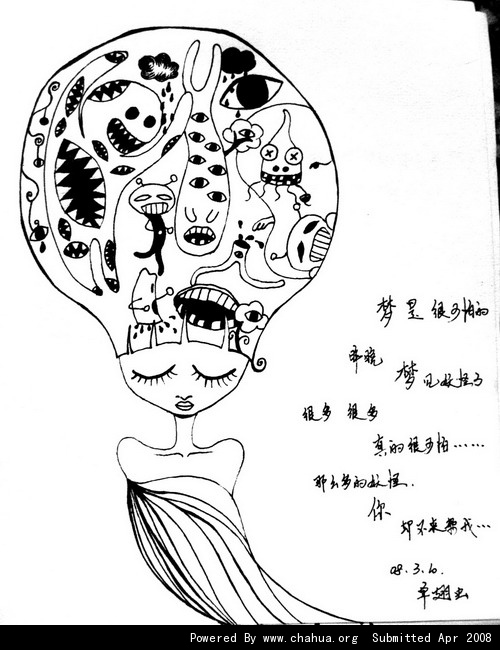 梦是很可怕的
昨晚
梦见妖怪了
很多 很多
真的很可怕……
那么多的妖怪.
你
却不来救我…
08.3.10.
Powered By www.chahua.org Submitted Apr 2008